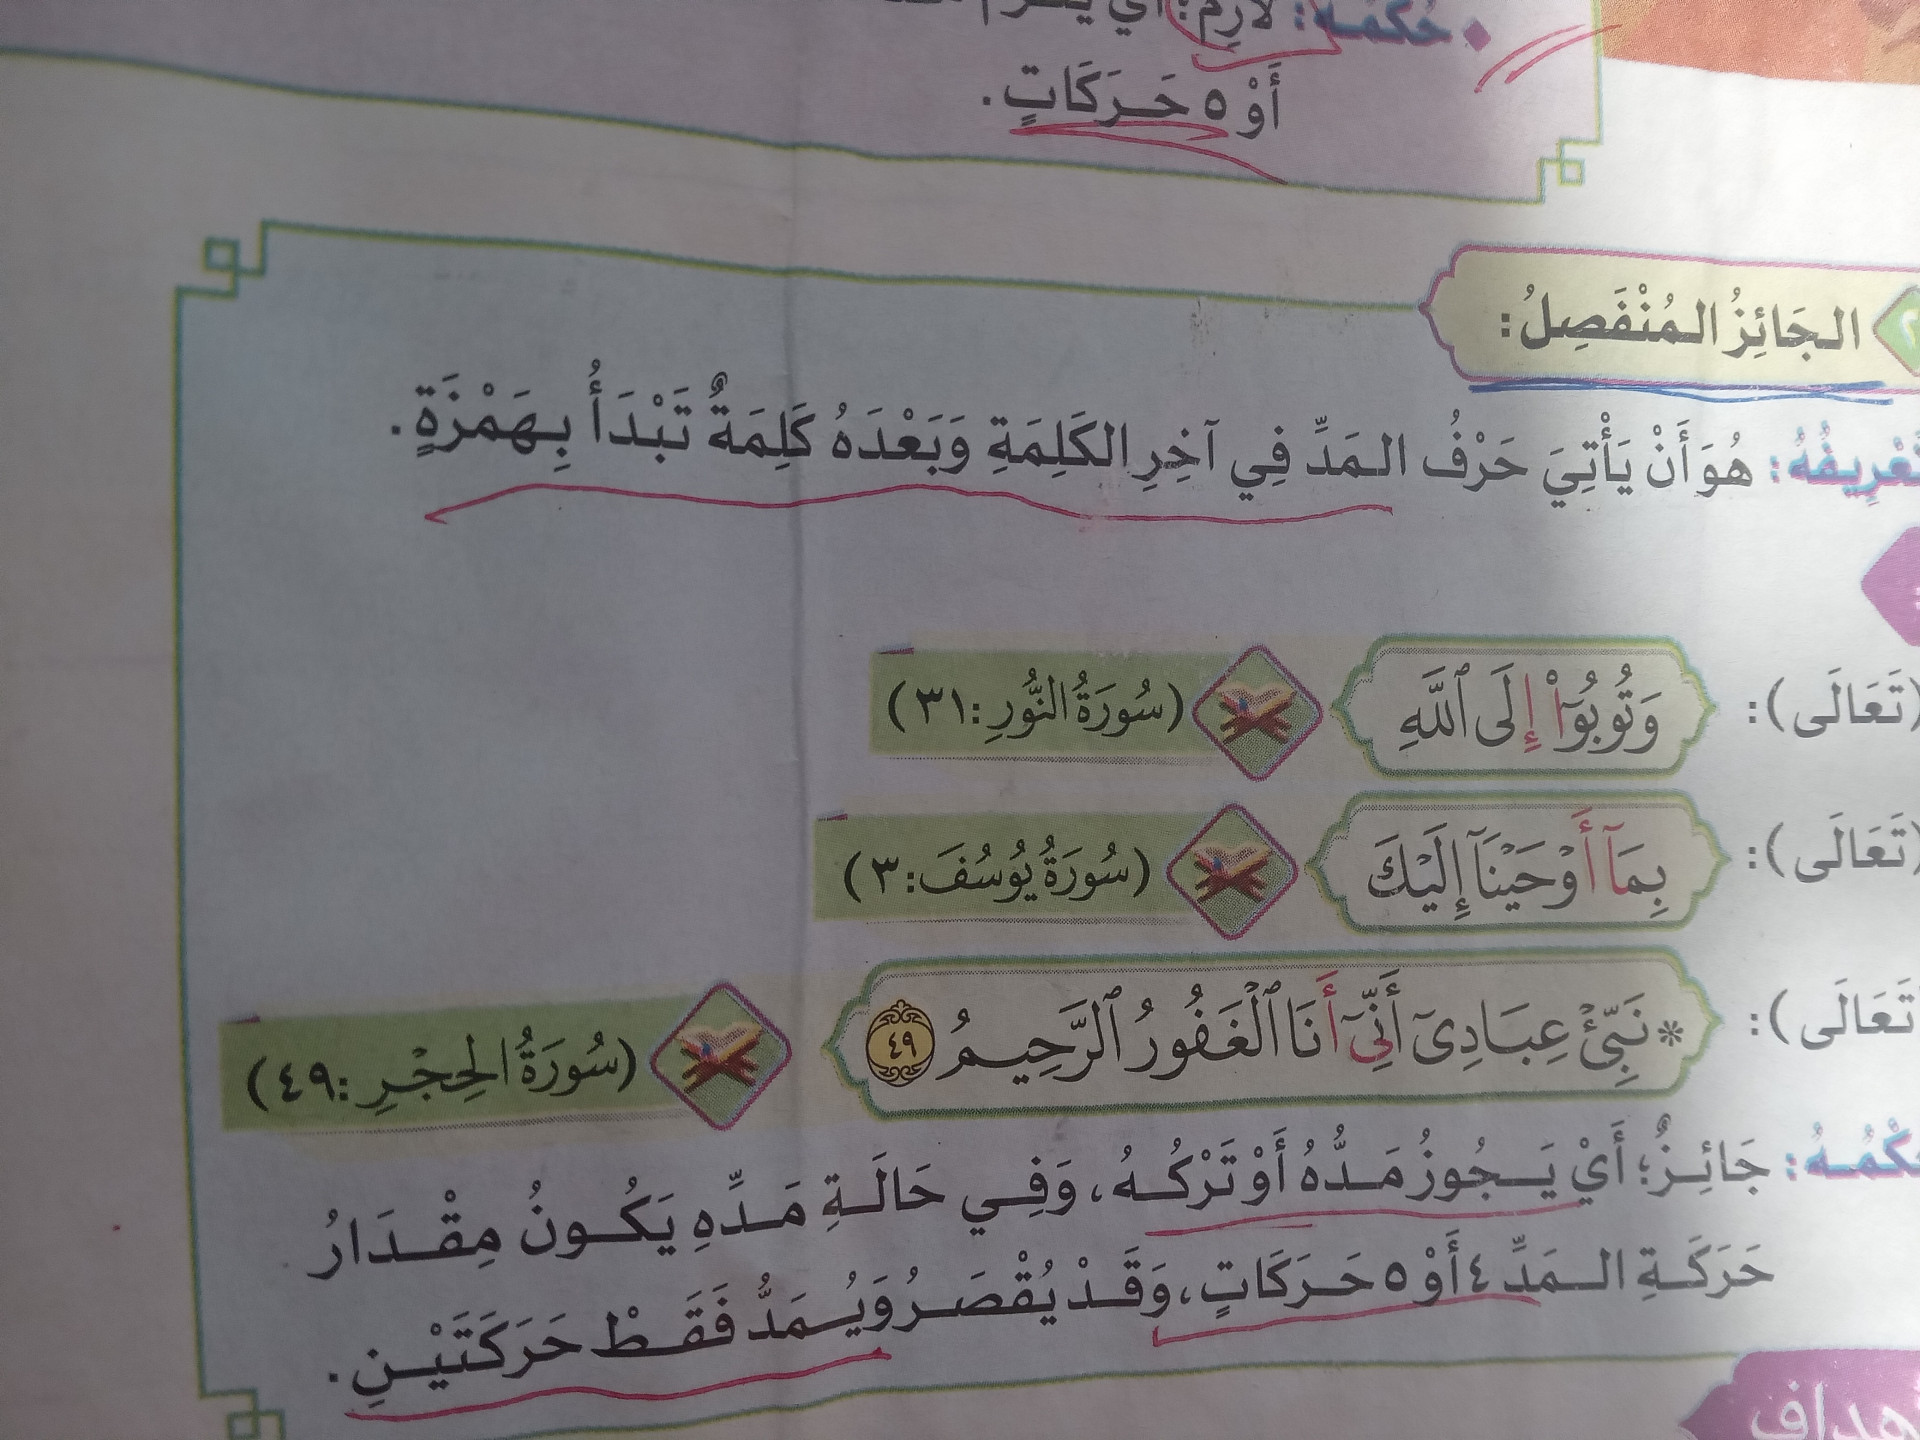 حُكْمُهُ: لَازِمٌ؛ أَيْ
أَوْ ٥ حَرَكَاتٍ.
٢ الجَائِزُ المُنْفَصِلُ:
تَعْرِيفُهُ: هُوَ أَنْ يَأْتِيَ حَرْفُ المَدِّ فِي آخِرِ الكَلِمَةِ وَبَعْدَهُ كَلِمَةٌ تَبْدَأُ بِهَمْزَةٍ.
(تَعَالَى): وَتُوبُوٓاْ إِلَى ٱللَّهِ (سُورَةُ النُّورِ: ٣١)
(تَعَالَى): بِمَآ أَوۡحَيۡنَآ إِلَيۡكَ (سُورَةُ يُوسُفَ: ٣)
تَعَالَى): * نَبِّئۡ عِبَادِىٓ أَنِّىٓ أَنَا ٱلۡغَفُورُ ٱلرَّحِيمُ ٤٩ (سُورَةُ الحِجْرِ: ٤٩)
حُكْمُهُ: جَائِزٌ؛ أَيْ يَجُوزُ مَدُّهُ أَوْ تَرْكُهُ، وَفِي حَالَةِ مَدِّهِ يَكُونُ مِقْدَارُ
حَرَكَةِ المَدِّ ٤ أَوْ ٥ حَرَكَاتٍ، وَقَدْ يُقْصَرُ وَيُمَدُّ فَقَطْ حَرَكَتَيْنِ.